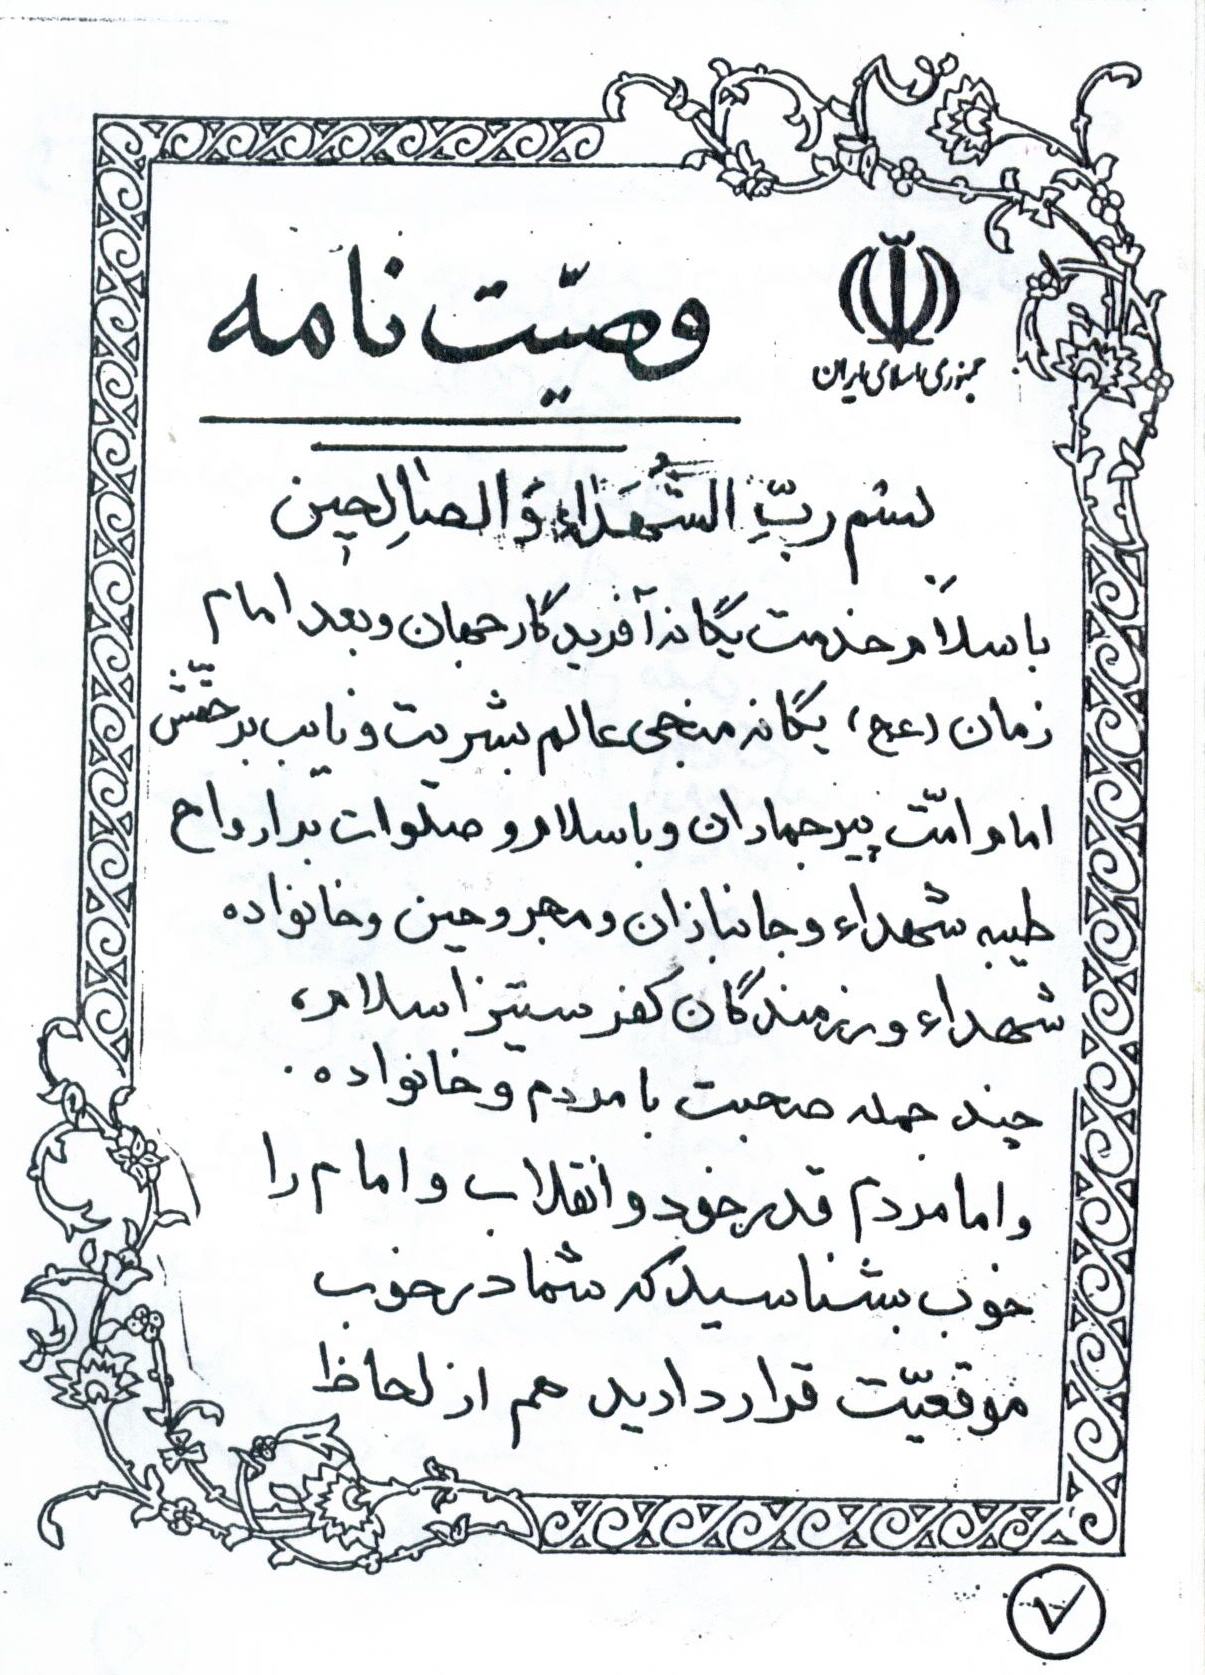 وصیّت نامه
جمهوری اسلامی ایران
بسم ربِّ الشُّهَداءِ وَ الصالِحین
با سلام خدمت یگانه آفریدگار جهان و بعد امام
زمان (عج) یگانه منجی عالم بشریت و نایب بر حقّش
امام امّت پیر جماران و با سلام و صلوات بر ارواح
طیبه شهداء و جانبازان و مجروحین و خانواده
شهداء و رزمندگان کفر ستیز اسلام،
چند جمله صحبت با مردم و خانواده.
و اما مردم قدر خود و انقلاب و امام را
خوب بشناسید که شما در خوب
موقعیّت قرار دارید هم از لحاظ